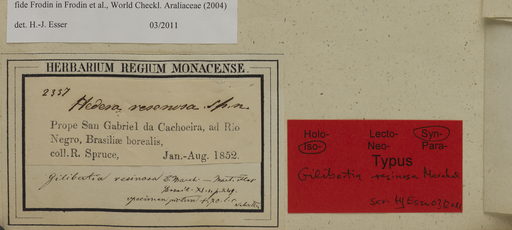 fide Frodin in Frodin et al., World Checkl. Araliaceae (2004)
det. H.-J. Esser 03/2011
HERBARIUM REGIUM MONACENSE.
2357
Hedera resinosa sp. n.
Prope San Gabriel da Cachoeira, ad Rio
Negro, Brasiliæ borealis,
coll. R. Spruce, Jan.-Aug. 1852.
Gilibertia resinosa
specimen
Holo- Lecto- Syn-
Iso- Neo- Para-
Typus
Gilibertia resinosa March.